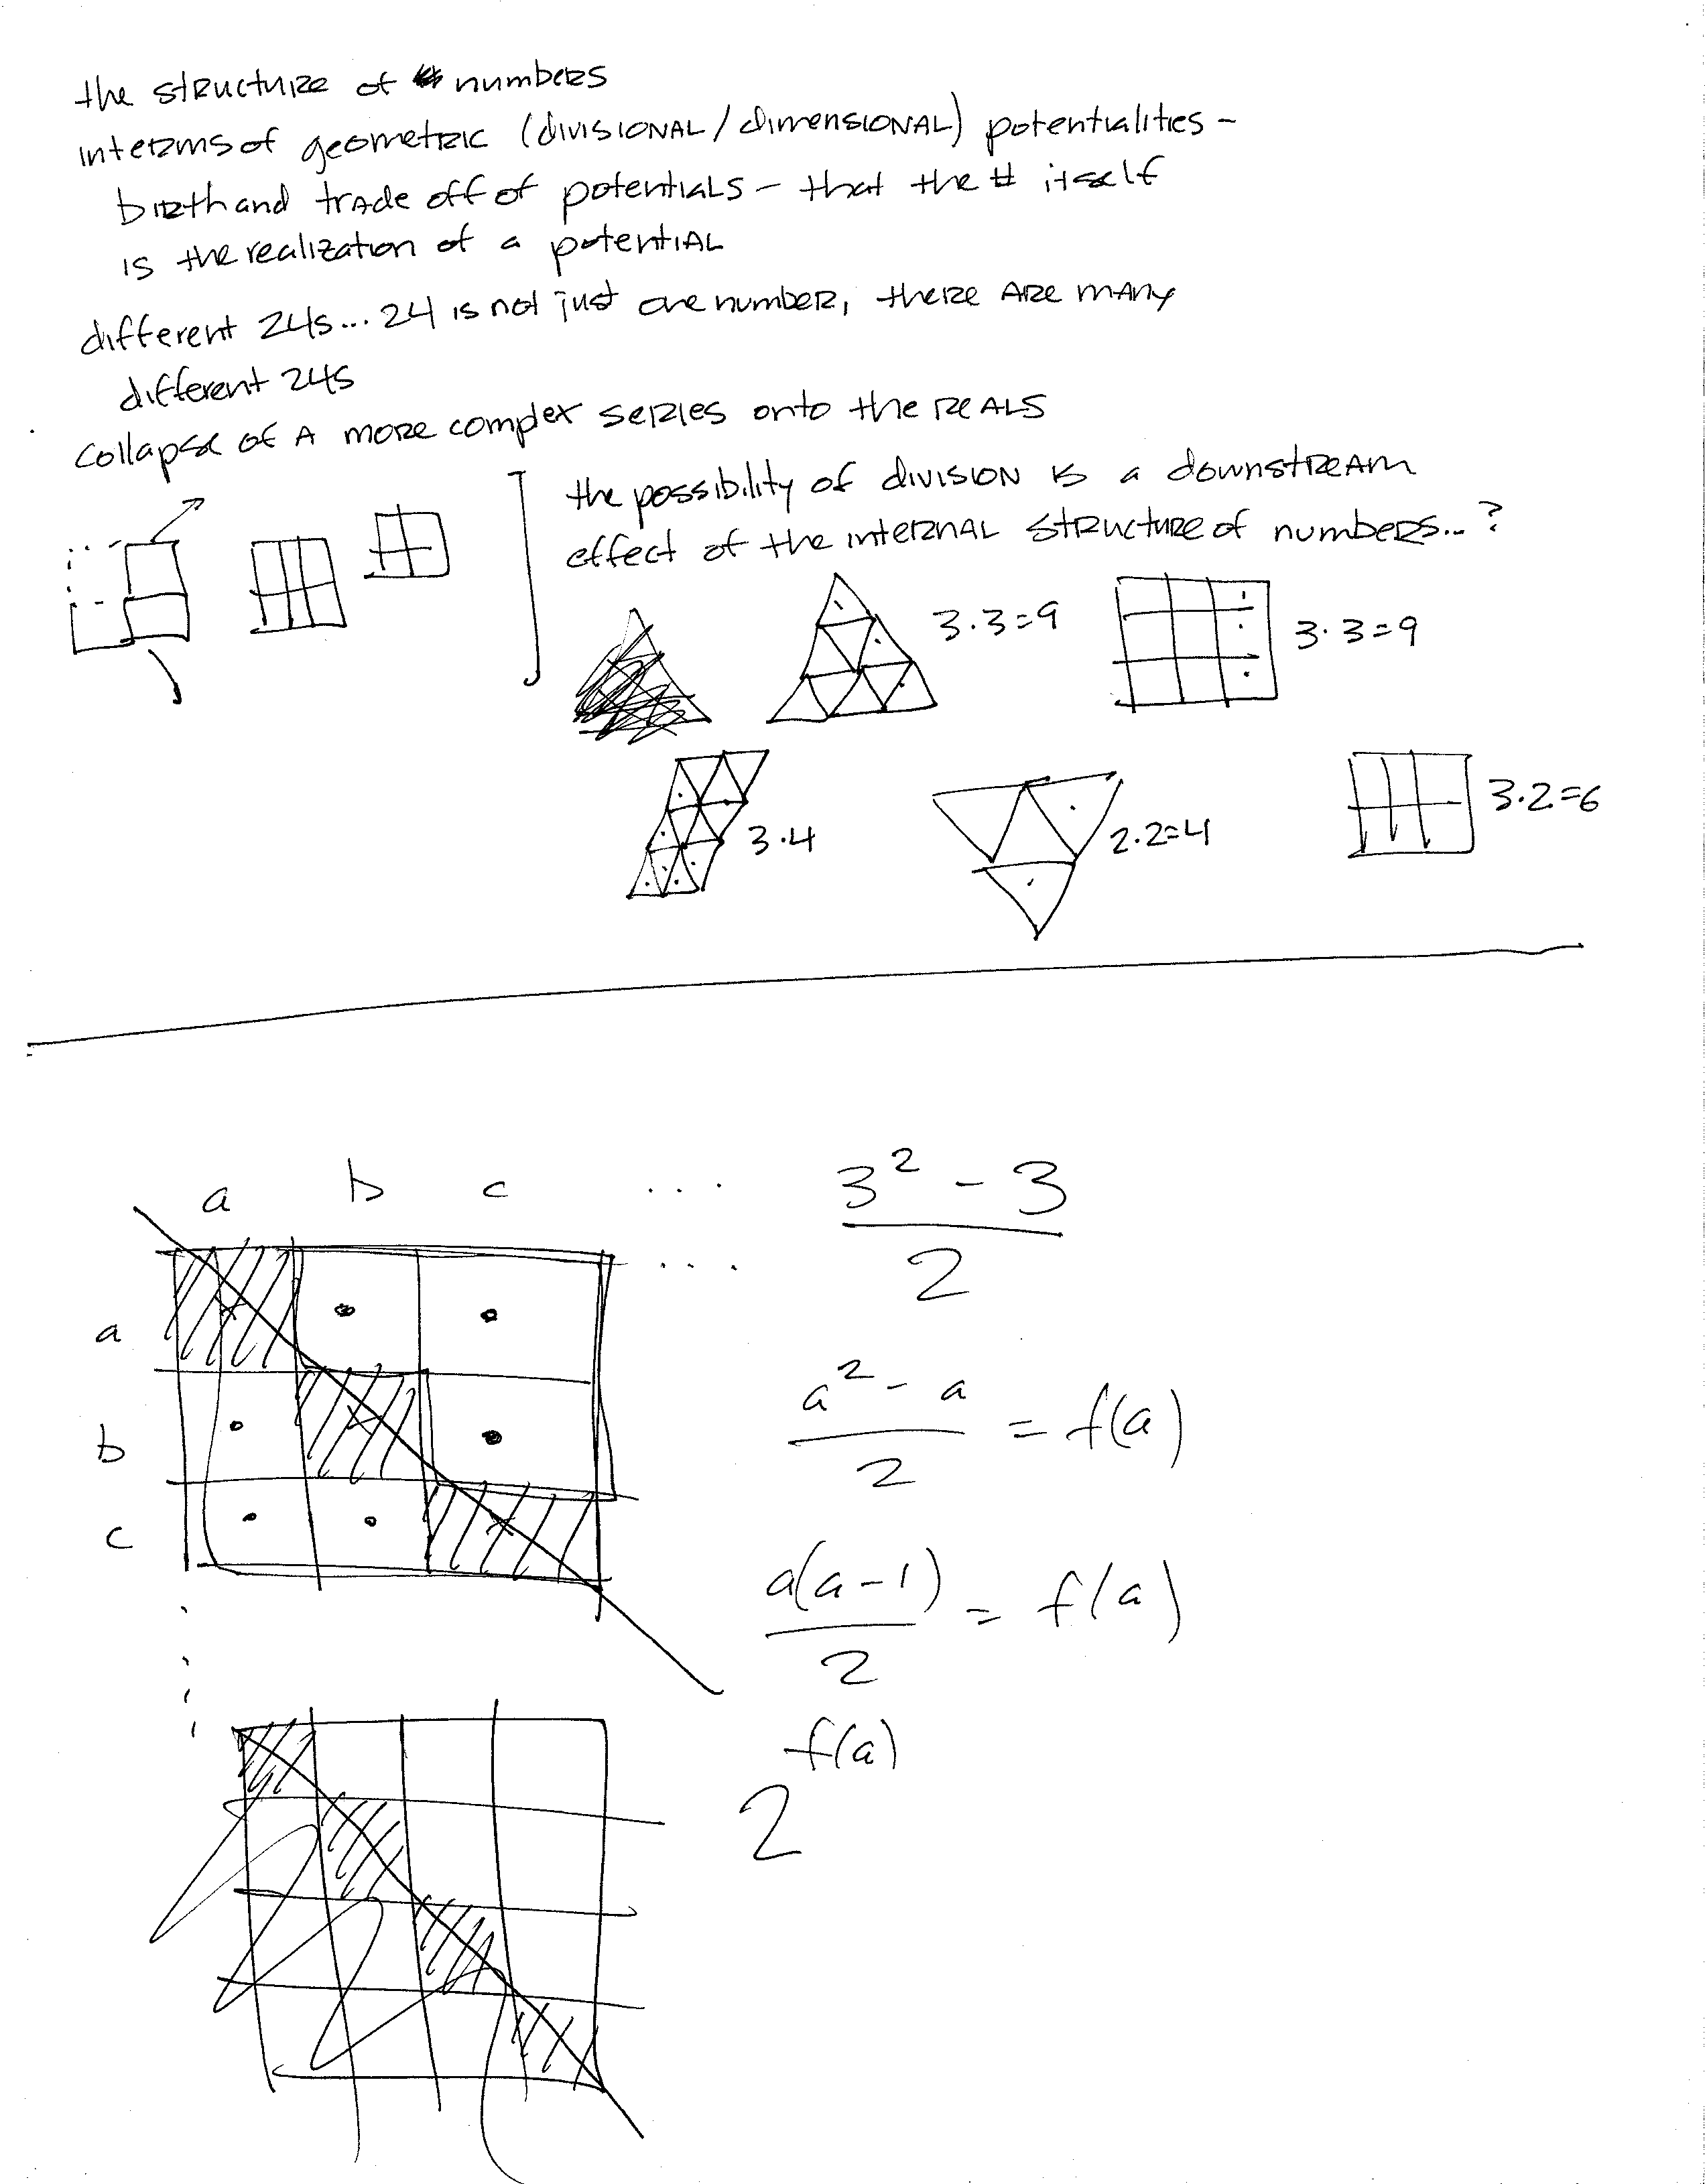 the structure of numbers
in terms of geometric (divisional/dimensional) potentialities -
birth and trade off of potentials - that the # itself
is the realization of a potential
different 24s... 24 is not just one number, there are many
different 24s
collapse of a more complex series onto the reals
the possibility of division is a downstream
effect of the internal structure of numbers...?
3·3=9
3·3=9
3·4
2·2=4
3·2=6
a b c ...
...
a
b
c
3² - 3
2
a² - a
2
= f(a)
a(a-1)
2
= f(a)
2^f(a)